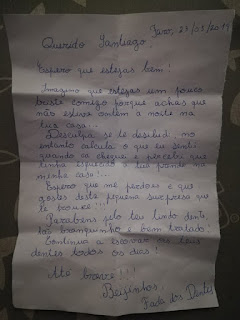 Faro, 23/05/2019
Querido Santiago,
Espero que estejas bem!
Imagino que estejas um pouco
triste comigo porque achas que
não estive ontem à noite na
tua casa...
Desculpa se te desiludi, no
entanto calcula o que eu senti
quando cá cheguei e percebi que
tinha esquecido o teu dente na
minha casa!...
Espero que me perdoes e que
gostes desta pequena surpresa que
te trouxe!!!
Parabéns pelo teu lindo dente,
tão branquinho e bem tratado!
Continua a escovar os teus
dentes todos os dias!
Até breve!!!
Beijinhos,
Fada dos Dentes